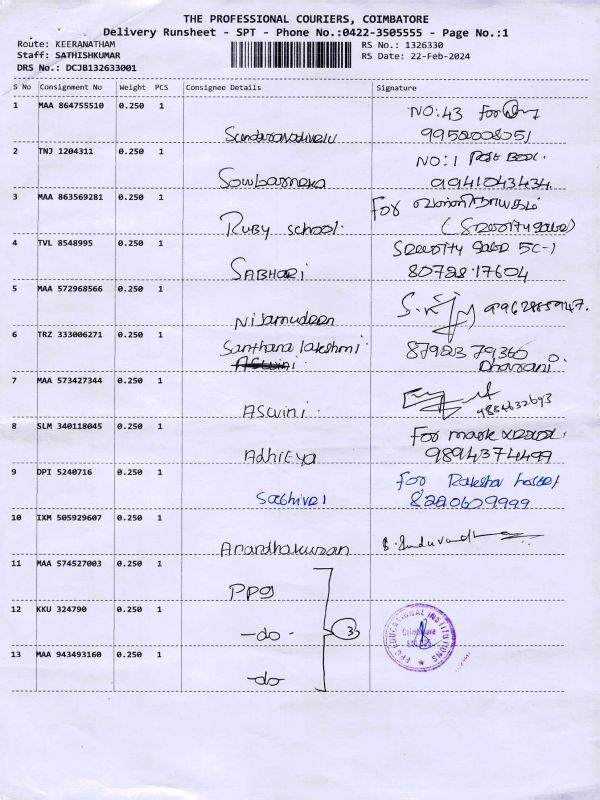 THE PROFESSIONAL COURIERS, COIMBATORE
Delivery Runsheet - SPT - Phone No.:0422-3505555 - Page No.:1
Route: KEERANATHAM
Staff: SATHISHKUMAR
DRS No.: DCJB132633001
RS No.: 1326330
RS Date: 22-Feb-2024
S No Consignment No Weight PCS Consignee Details Signature
1 MAA 864755510 0.250 1 NO:43 For
9952008051
2 TNJ 1204311 0.250 1 Sowbarneka NO:1
9941043434
3 MAA 863569281 0.250 1 Ruby school. For
4 TVL 8548995 0.250 1 SABHARI 5C-1
80728 17604
5 MAA 572968566 0.250 1 Nijamudeen
6 TRZ 333006271 0.250 1 Santhana lakshmi
Dharani
7 MAA 573427344 0.250 1 ASwini
8 SLM 340118045 0.250 1 AdhiEya For mark
9894374499
9 DPI 5240716 0.250 1 Sathivel For
8220609999
10 IXM 505929607 0.250 1 Anandhakumar
11 MAA 574527003 0.250 1 PPg
12 KKU 324790 0.250 1 -do- 3
PPG EDUCATIONAL INSTITUTIONS
Coimbatore
13 MAA 943493160 0.250 1 -do